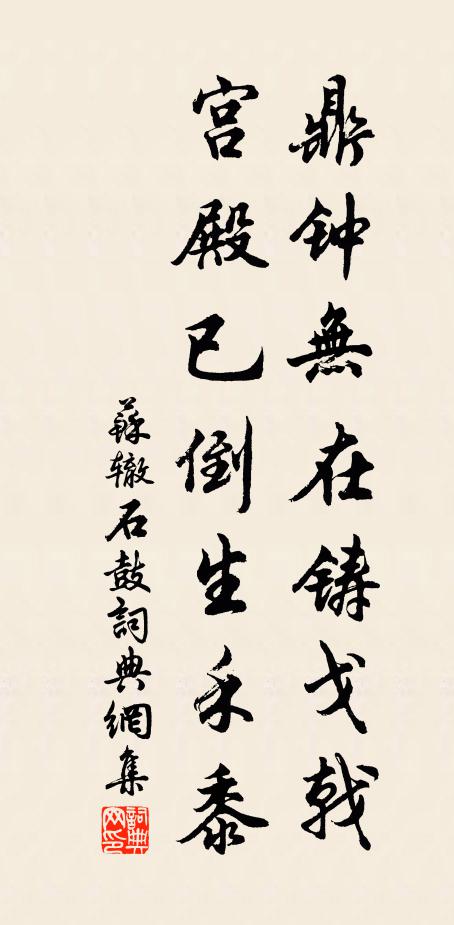 鼎钟無在铸戈戟
宫殿已倒生禾黍
蘇辙石鼓詞典網集
詞典网印